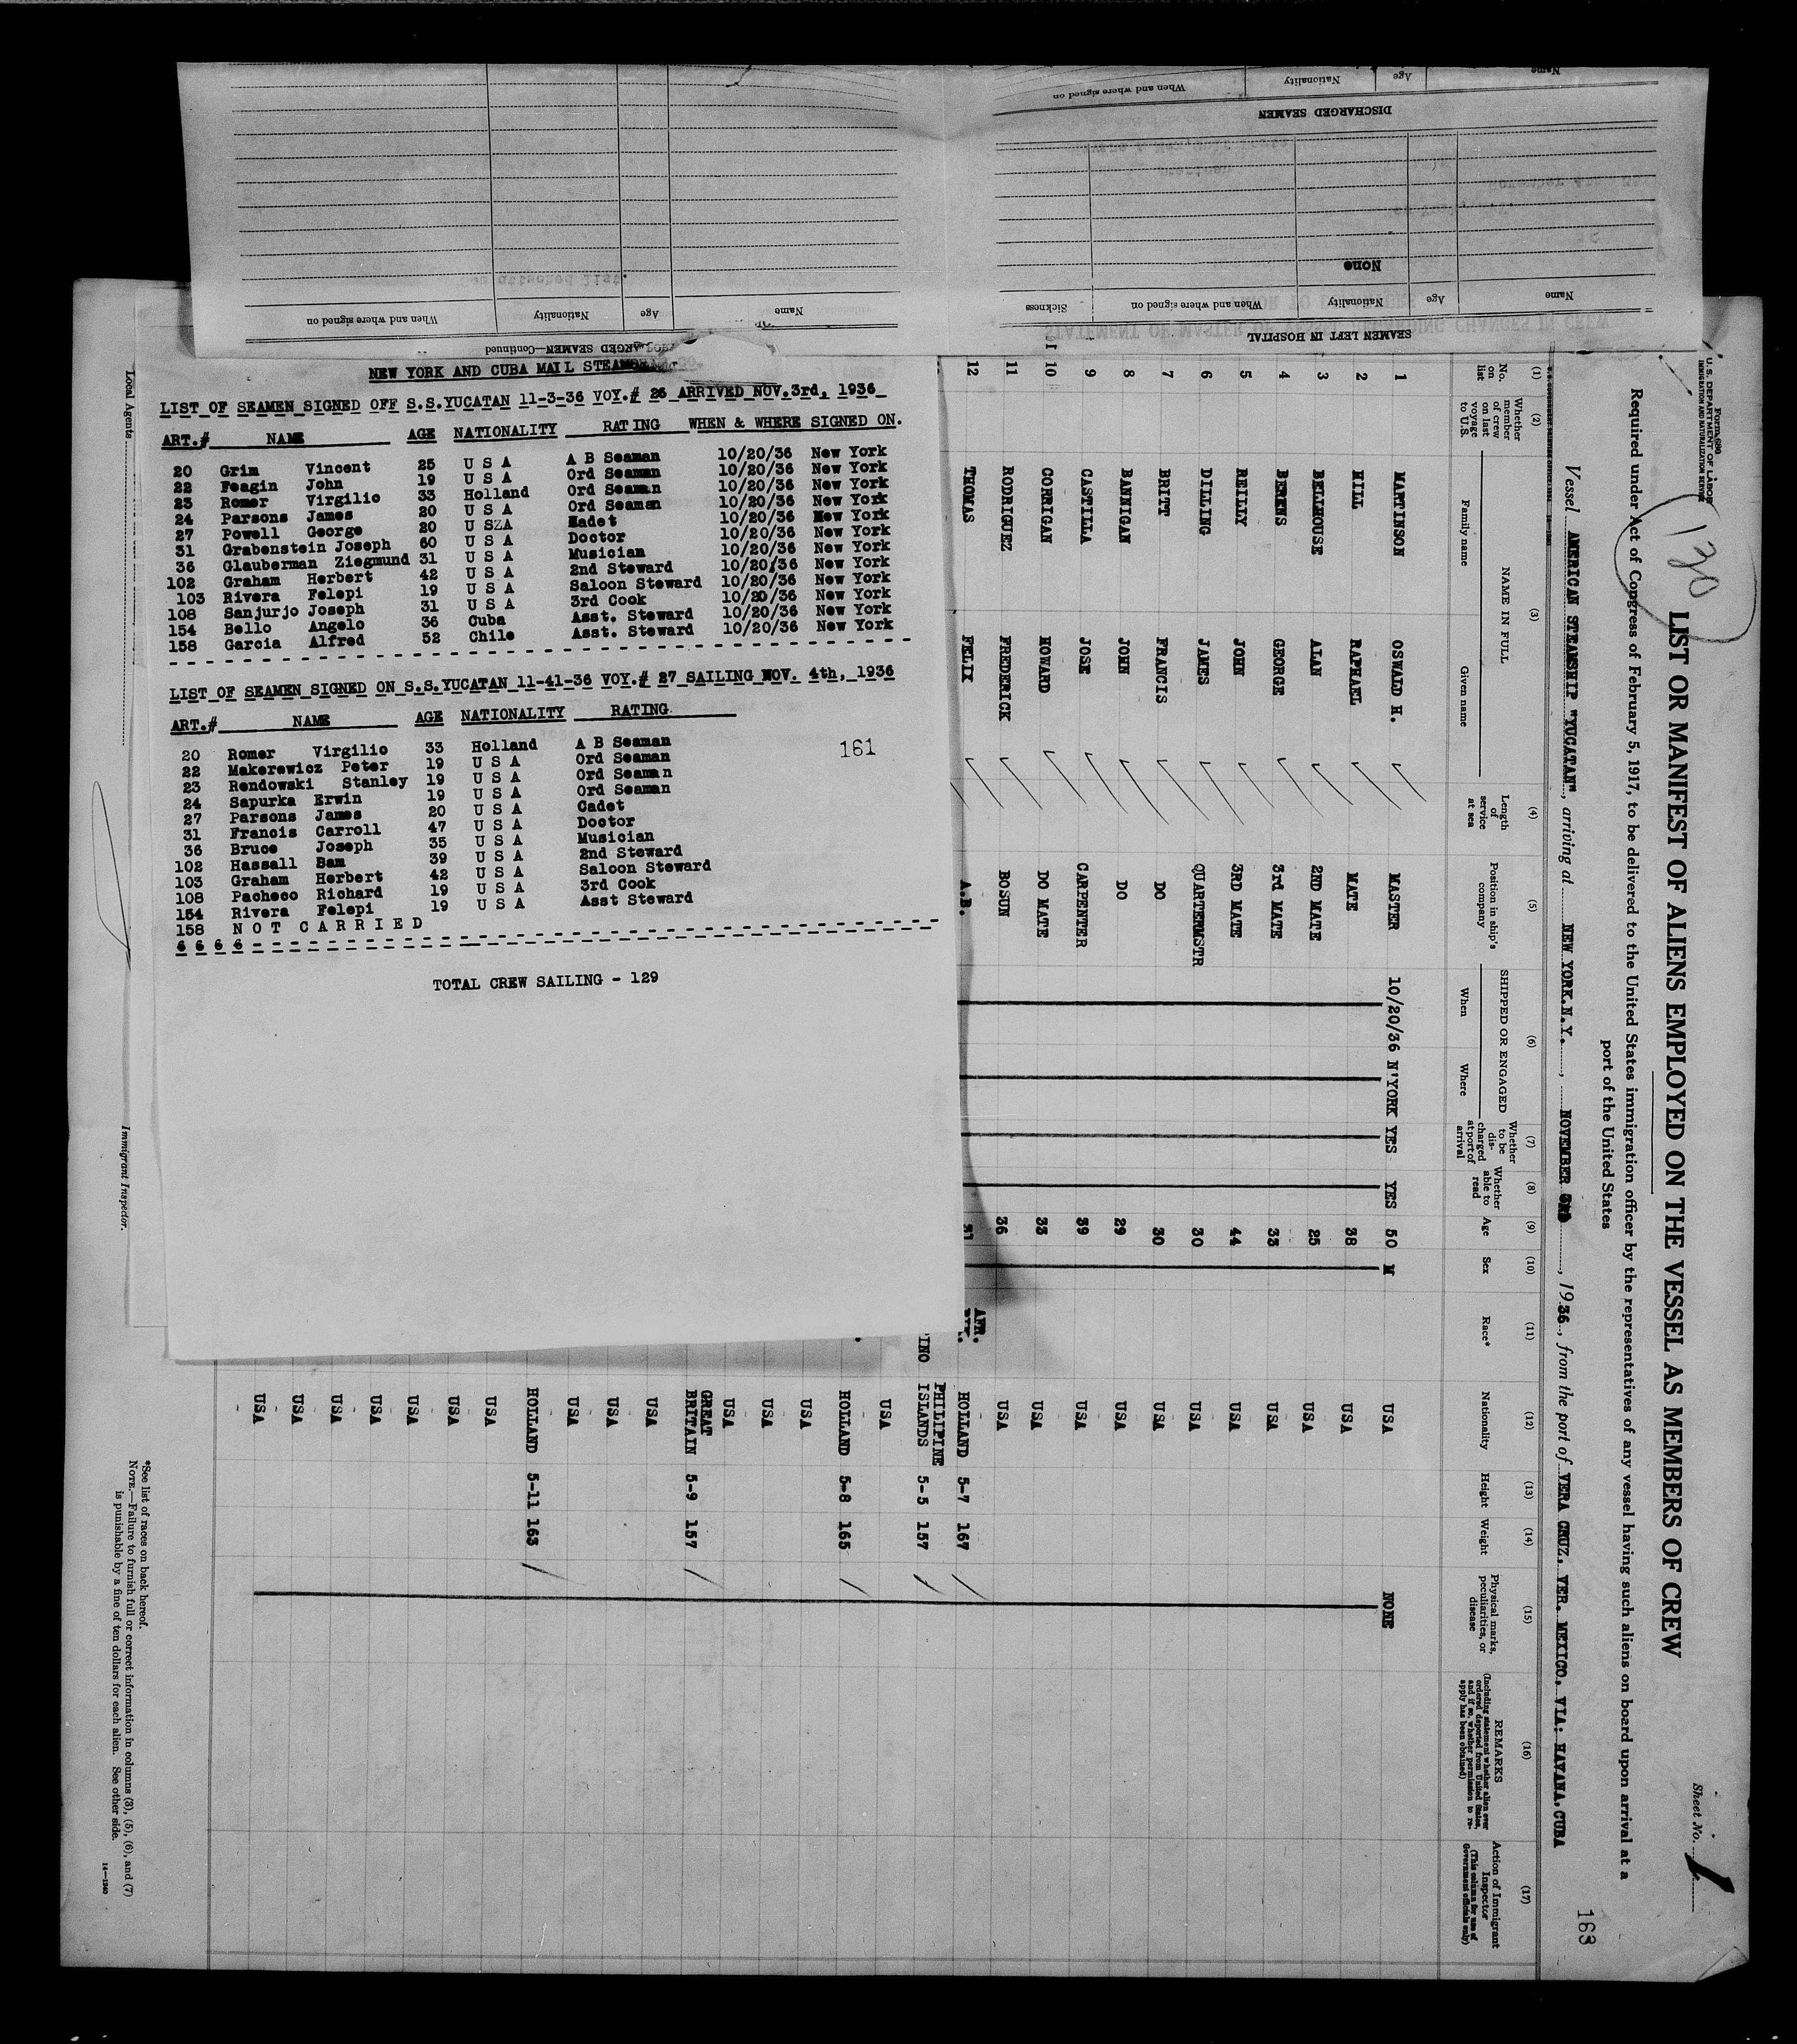 SEAMEN LEFT IN HOSPITAL
Name Age Nationality When and where signed on Sickness
None
DISCHARGED SEAMEN
Name Age Nationality When and where signed on
DISCHARGED SEAMEN—Continued
Name Age Nationality When and where signed on
NEW YORK AND CUBA MAIL
LIST OF SEAMEN SIGNED OFF S.S.YUCATAN 11-3-36 VOY.# 26 ARRIVED NOV.3rd, 1936
ART.# NAME AGE NATIONALITY RATING WHEN & WHERE SIGNED ON.
20 Grim Vincent 25 U S A A B Seaman 10/20/36 New York
22 Feagin John 19 U S A Ord Seaman 10/20/36 New York
23 Romer Virgilio 33 Holland Ord Seaman 10/20/36 New York
24 Parsons James 20 U S A Ord Seaman 10/20/36 New York
27 Powell George 20 U SZA Cadet 10/20/36 New York
31 Grabenstein Joseph 60 U S A Doctor 10/20/36 New York
36 Glauberman Ziegmund 31 U S A Musician 10/20/36 New York
102 Graham Herbert 42 U S A 2nd Steward 10/20/36 New York
103 Rivera Felepi 19 U S A Saloon Steward 10/20/36 New York
108 Sanjurjo Joseph 31 U S A 3rd Cook 10/20/36 New York
154 Bello Angelo 36 Cuba Asst. Steward 10/20/36 New York
158 Garcia Alfred 52 Chile Asst. Steward 10/20/36 New York
LIST OF SEAMEN SIGNED ON S.S.YUCATAN 11-41-36 VOY.# 27 SAILING NOV. 4th, 1936
ART.# NAME AGE NATIONALITY RATING
161
20 Romer Virgilio 33 Holland A B Seaman
22 Makerewicz Peter 19 U S A Ord Seaman
23 Rendowski Stanley 19 U S A Ord Seaman
24 Sapurka Erwin 19 U S A Ord Seaman
27 Parsons James 20 U S A Cadet
31 Francis Carroll 47 U S A Doctor
36 Bruce Joseph 35 U S A Musician
102 Hassall Bam 39 U S A 2nd Steward
103 Graham Herbert 42 U S A Saloon Steward
108 Pacheco Richard 19 U S A 3rd Cook
154 Rivera Felepi 19 U S A Asst Steward
158 N O T C A R R I E D
6 6 6 6
TOTAL CREW SAILING - 129
Form 680
U. S. DEPARTMENT OF LABOR
IMMIGRATION AND NATURALIZATION SERVICE
130
Sheet No. 1
163
LIST OR MANIFEST OF ALIENS EMPLOYED ON THE VESSEL AS MEMBERS OF CREW
Required under Act of Congress of February 5, 1917, to be delivered to the United States immigration officer by the representatives of any vessel having such aliens on board upon arrival at a
port of the United States
Vessel AMERICAN STEAMSHIP "YUCATAN", arriving at NEW YORK.N.Y., NOVEMBER 3RD, 1936, from the port of VERA CRUZ. VER. MEXICO. VIA: HAVANA.CUBA
(1) (2) (3) (4) (5) (6) (7) (8) (9) (10) (11) (12) (13) (14) (15) (16) (17)
No. on list
Whether member of crew on last voyage to U.S.
NAME IN FULL
Family name
Given name
Length of service at sea
Position in ship's company
SHIPPED OR ENGAGED
When
Where
Whether to be discharged at port of arrival
Whether able to read
Age
Sex
Race*
Nationality
Height
Weight
Physical marks, peculiarities, or disease
REMARKS
(Including statement whether alien ever ordered deported from United States, and if so, whether permission to reapply has been obtained)
Action of Immigrant Inspector
(This column for use of Government officials only)
1 MARTINSON OSWALD H. MASTER 10/20/36 N'YORK YES YES 50 M USA NONE
2 HILL RAPHAEL MATE 38 USA
3 BELLHOUSE ALAN 2ND MATE 25 USA
4 BERENS GEORGE 3rd MATE 33 USA
5 REILLY JOHN 3RD MATE 44 USA
6 DILLING JAMES QUARTERMSTR 30 USA
7 BRITT FRANCIS DO 30 USA
8 BANNIGAN JOHN DO 29 USA
9 CASTILLA JOSE CARPENTER 39 USA
10 CORRIGAN HOWARD DO MATE 33 USA
11 RODRIGUEZ FREDERICK BOSUN 36 USA
12 THOMAS FELIX A.B. AFR. HOLLAND 5-7 167
PHILIPINE ISLANDS 5-5 157
USA
HOLLAND 5-8 165
USA
USA
USA
GREAT BRITAIN 5-9 157
USA
USA
USA
HOLLAND 5-11 163
USA
USA
USA
USA
USA
USA
USA
Local Agents
Immigrant Inspector.
*See list of races on back hereof.
NOTE.—Failure to furnish full or correct information in columns (3), (5), (6), and (7)
is punishable by a fine of ten dollars for each alien. See other side.
14—1240